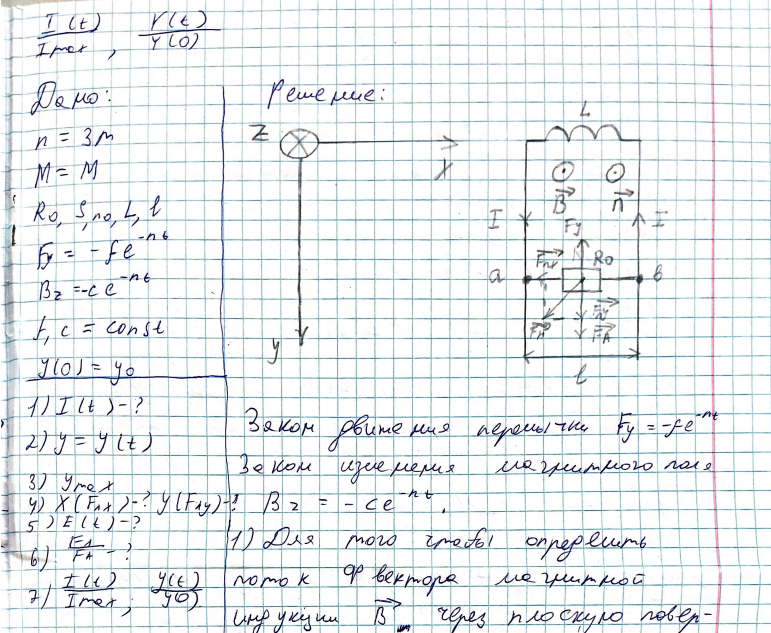 I(t)/Imax , Y(t)/Y(0)
Дано:
n = 3m
M = M
R₀, S, n₀, L, l
Fy = -fe^-nt
Bz = -ce^-nt
f, c = const
y(0) = y₀
1) I(t) - ?
2) y = y(t)
3) ymax
4) X(Fлx) - ? y(Fлy) - ?
5) E(t) - ?
6) Fл/FА - ?
7) I(t)/Imax ; y(t)/y(0)
Решение:
Z
X
y
L
B n
I Fy I
Fлx R₀
a в
Fлy
Fл FА
l
Закон движения перемычки Fy = -fe^-nt
Закон изменения магнитного поля
Bz = -ce^-nt.
1) Для того чтобы определить
поток Ф вектора магнитной
индукции B через плоскую повер-